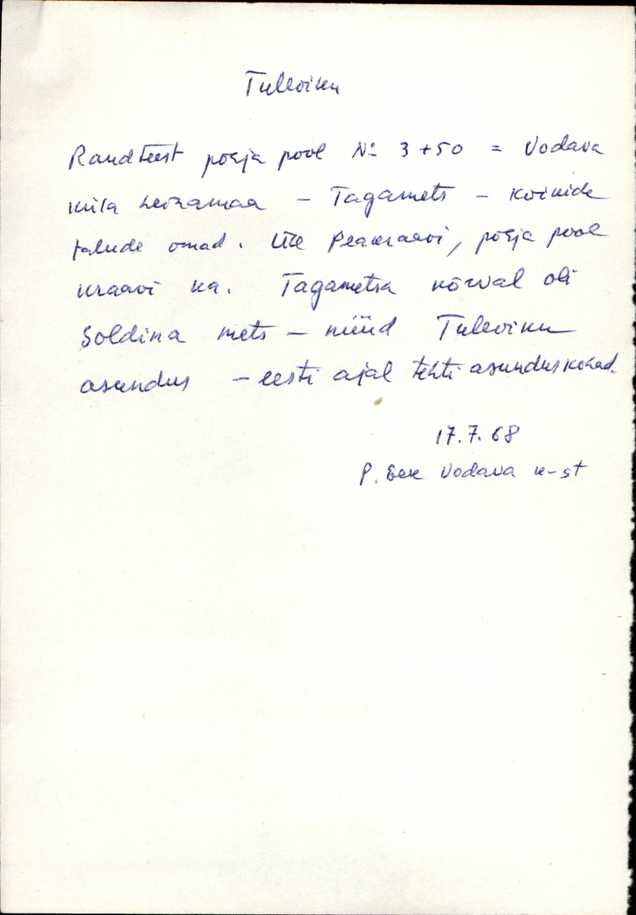 Tuleviku
Raudteest põhja pool № 3+50 = Vodava
küla heinamaa – Tagamets – kõikide
talude omad. Üle Peakraavi, põhja pool
kraavi ka. Tagametsa kõrval oli
Soldina mets – nüüd Tuleviku
asundus – eesti ajal tehti asunduskohad.
17.7.68
P. Vodava k-st